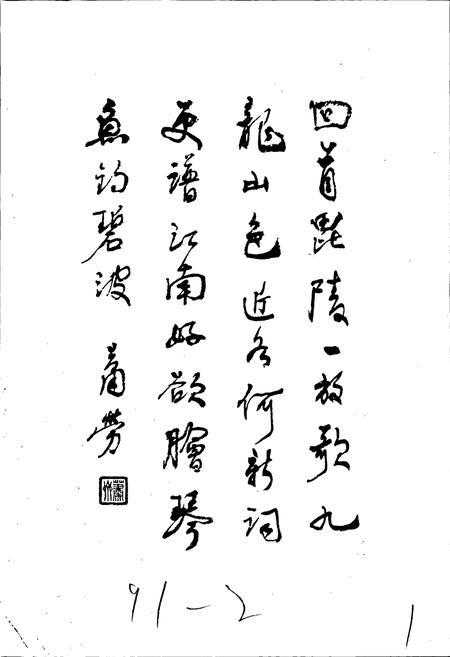 回首毗陵一放歌九
龍山色近如何新詞
更譜江南好欲膾琴
魚釣碧波 蕭勞
91-2
1